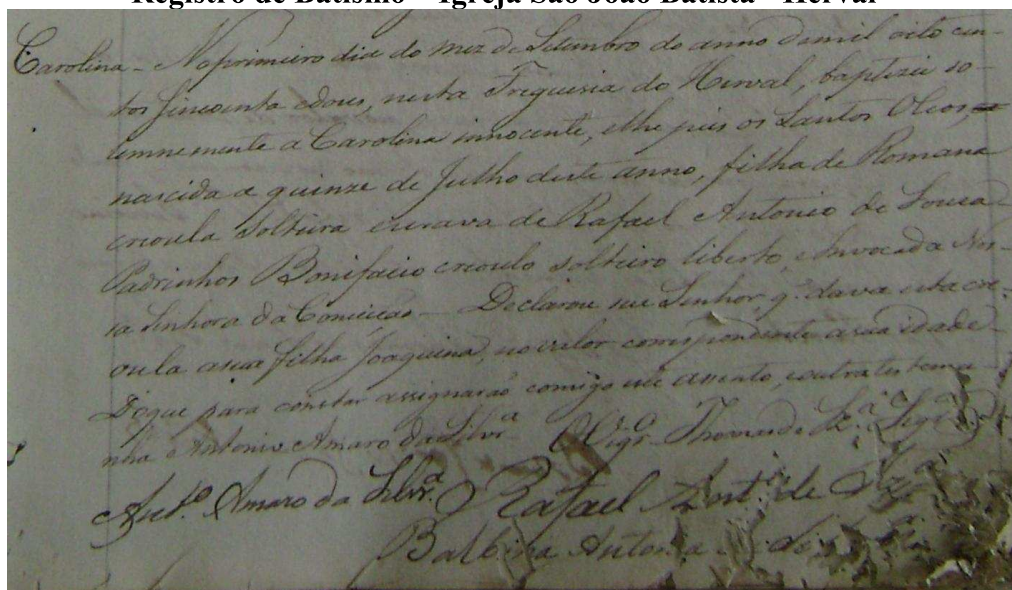 Registro de Batismo – Igreja São João Batista - Herval
Carolina – No primeiro dia do mez de Setembro do anno demil oito cen-
tos sincoenta edous, nesta Freguesia do Herval, baptizei so-
lemnemente a Carolina innocente, elhe puis os Santos Oleos,
nascida a quinze de Julho deste anno, filha de Romana
creoula solteira escrava de Rafael Antonio de Souza
Padrinhos Bonifacio creoulo solteiro liberto, einvocada Nos-
sa Senhora da Conceição – Declarou seu Senhor q. dava esta cre-
oula asua filha Joaquina, no valor correspondente asua idade
Doque para constar assignarão comigo este assento, eoutra testemu-
nha Antonio Amaro da Silvr.ª O Vigr.º Thomas de Sz.ª
Ant.º Amaro da Silvr.ª Rafael Ant.º de Sz.ª
Balbina Antonia de